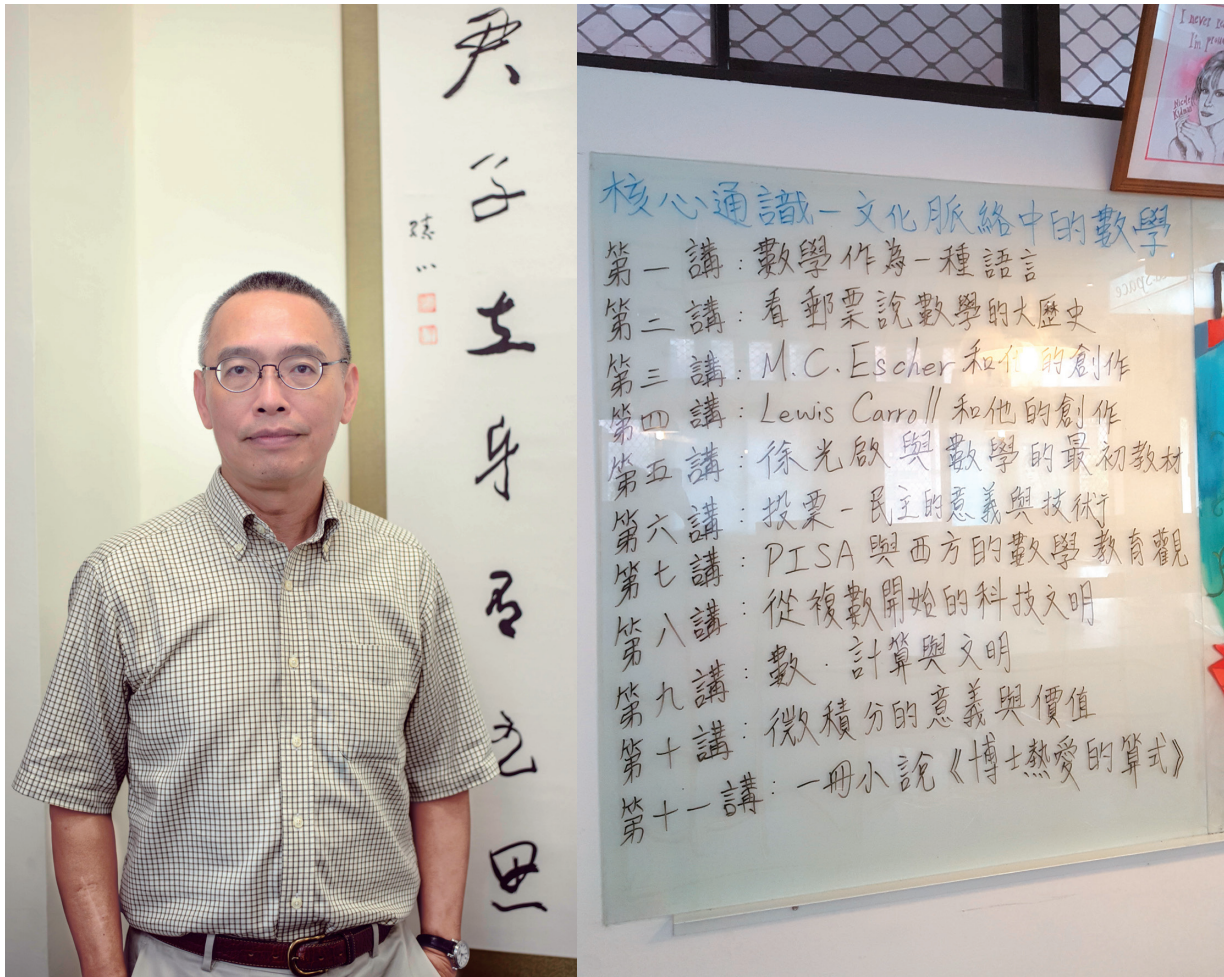 君子立身有九思
核心通識－文化脈絡中的數學
第一講：數學作為一種語言
第二講：看郵票說數學的大歷史
第三講：M.C.Escher和他的創作
第四講：Lewis Carroll和他的創作
第五講：徐光啟與數學的最初教材
第六講：投票－民主的意義與技術
第七講：PISA與西方的數學教育觀
第八講：從複數開始的科技文明
第九講：數．計算與文明
第十講：微積分的意義與價值
第十一講：一冊小說《博士熱愛的算式》
I never
I'm
Nicole
Kidman